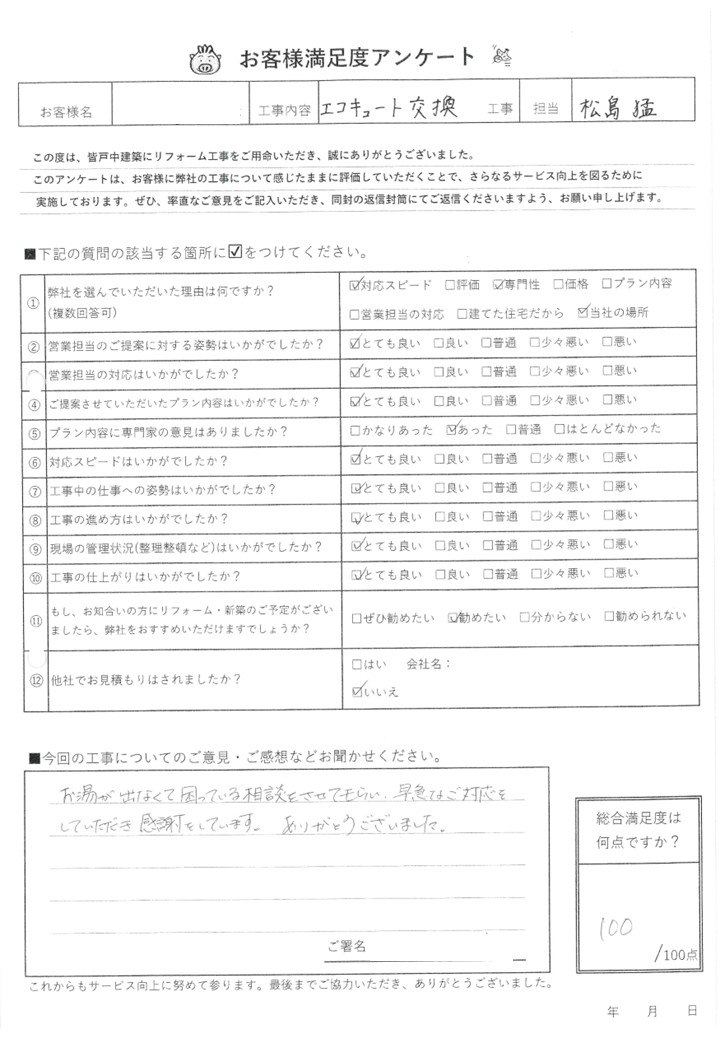 お客様満足度アンケート
お客様名 工事内容 エコキュート交換 工事 担当 松島 猛
この度は、皆戸中建築にリフォーム工事をご用命いただき、誠にありがとうございました。
このアンケートは、お客様に弊社の工事について感じたままに評価していただくことで、さらなるサービス向上を図るために
実施しております。ぜひ、率直なご意見をご記入いただき、同封の返信封筒にてご返信くださいますよう、お願い申し上げます。
■下記の質問の該当する箇所に☑をつけてください。
① 弊社を選んでいただいた理由は何ですか？
(複数回答可)
☑対応スピード □評価 ☑専門性 □価格 □プラン内容
□営業担当の対応 □建てた住宅だから ☑当社の場所
② 営業担当のご提案に対する姿勢はいかがでしたか？ ☑とても良い □良い □普通 □少々悪い □悪い
営業担当の対応はいかがでしたか？ ☑とても良い □良い □普通 □少々悪い □悪い
④ ご提案させていただいたプラン内容はいかがでしたか？ ☑とても良い □良い □普通 □少々悪い □悪い
⑤ プラン内容に専門家の意見はありましたか？ □かなりあった ☑あった □普通 □ほとんどなかった
⑥ 対応スピードはいかがでしたか？ ☑とても良い □良い □普通 □少々悪い □悪い
⑦ 工事中の仕事への姿勢はいかがでしたか？ ☑とても良い □良い □普通 □少々悪い □悪い
⑧ 工事の進め方はいかがでしたか？ ☑とても良い □良い □普通 □少々悪い □悪い
⑨ 現場の管理状況(整理整頓など)はいかがでしたか？ ☑とても良い □良い □普通 □少々悪い □悪い
⑩ 工事の仕上がりはいかがでしたか？ ☑とても良い □良い □普通 □少々悪い □悪い
⑪ もし、お知合いの方にリフォーム・新築のご予定がござい
ましたら、弊社をおすすめいただけますでしょうか？
□ぜひ勧めたい ☑勧めたい □分からない □勧められない
⑫ 他社でお見積もりはされましたか？
□はい 会社名：
☑いいえ
■今回の工事についてのご意見・ご感想などお聞かせください。
お湯が出なくて困っている相談をさせてもらい、早急なご対応を
していただき感謝をしています。 ありがとうございました。
ご署名
総合満足度は
何点ですか？
100
/100点
これからもサービス向上に努めて参ります。最後までご協力いただき、ありがとうございました。
年 月 日